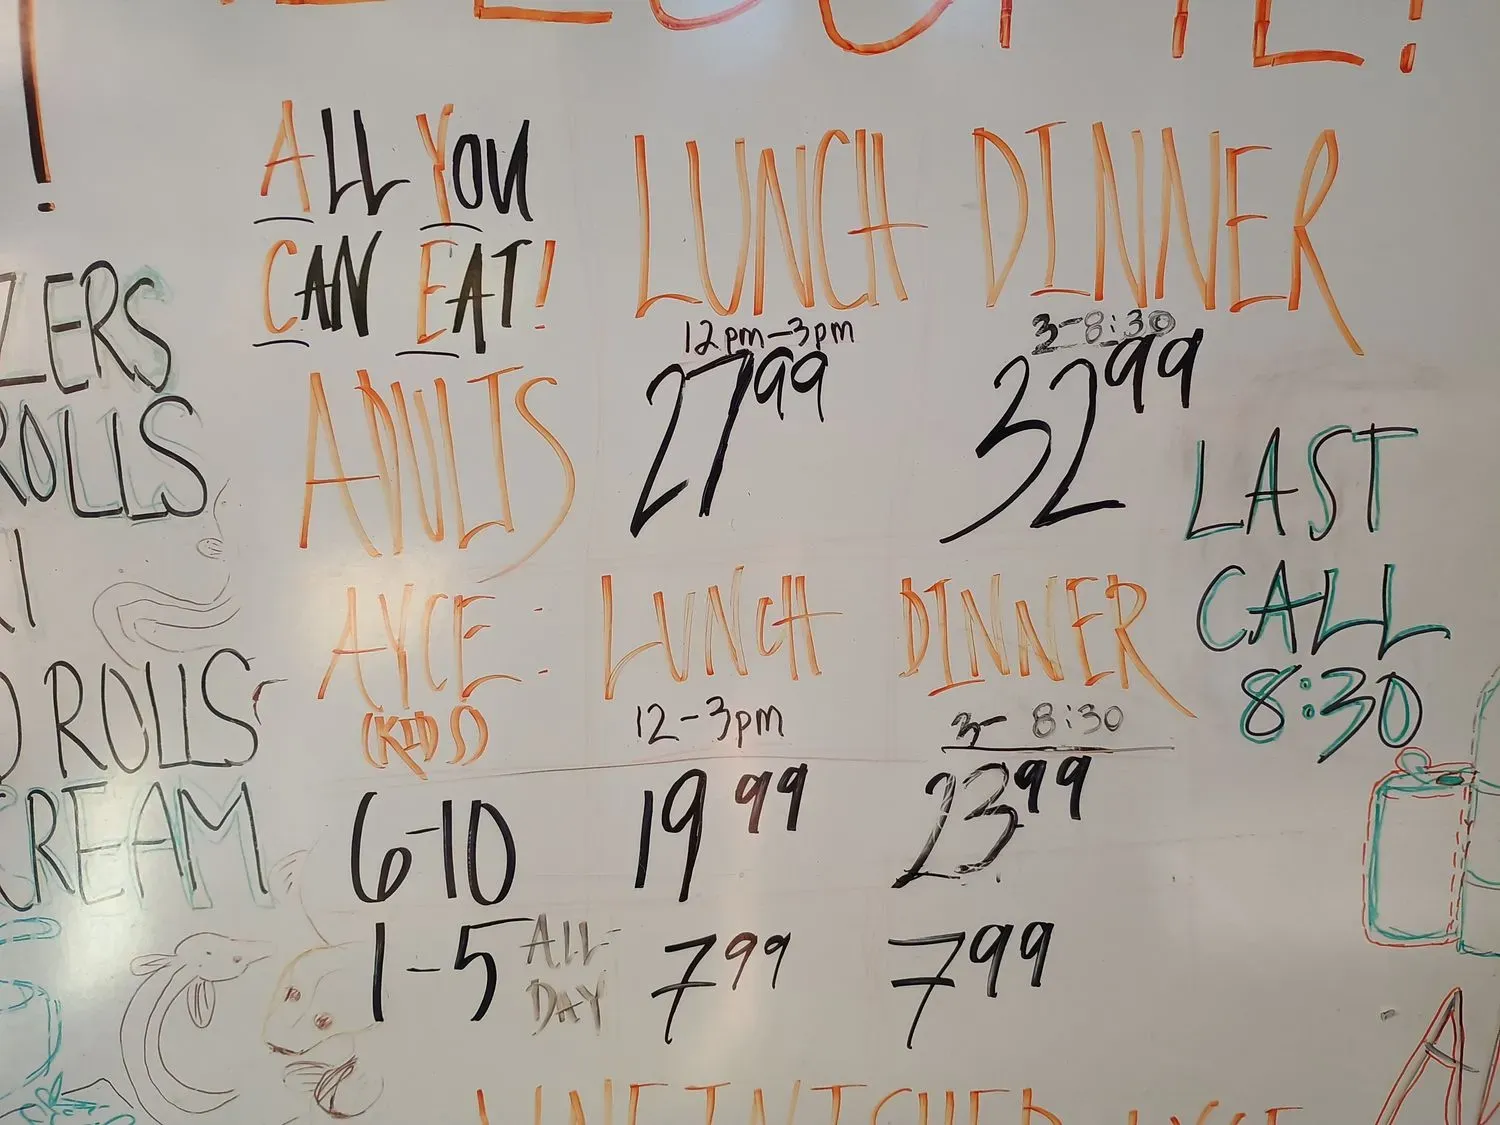 !
ALL YOU
CAN EAT!
LUNCH DINNER
12pm-3pm
3-8:30
ADULTS 27 99 32 99
LAST
CALL
8:30
AYCE: LUNCH DINNER
(KIDS) 12-3pm 3- 8:30
6-10 19 99 23 99
1-5 ALL DAY 7 99 7 99
ZERS
ROLLS
ROLLS
CREAM
UNFINISHED AYCE